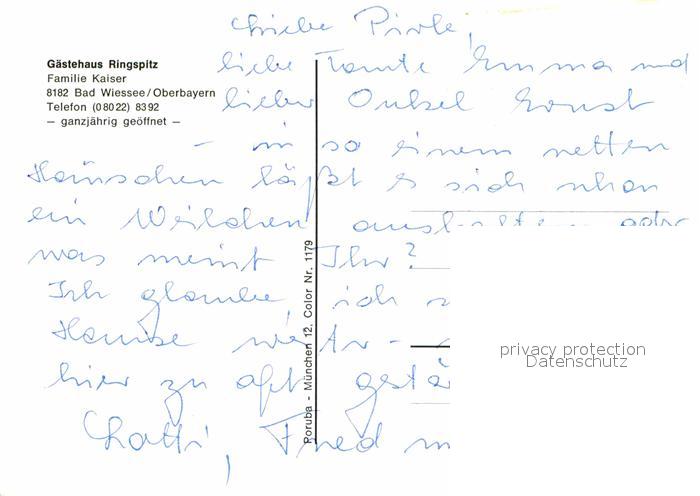 Gästehaus Ringspitz
Familie Kaiser
8182 Bad Wiessee/Oberbayern
Telefon (08022) 8392
— ganzjährig geöffnet —
Poruba - München 12, Color Nr. 1179
liebe Tante Emma und
lieber Onkel Ernst
- in so einem netten
Häuschen läßt es sich schon
ein Weilchen aushalten oder
was meint Ihr?
Ich glaube, ich
Hause
hier zu oft gestä
Fred
privacy protection
Datenschutz